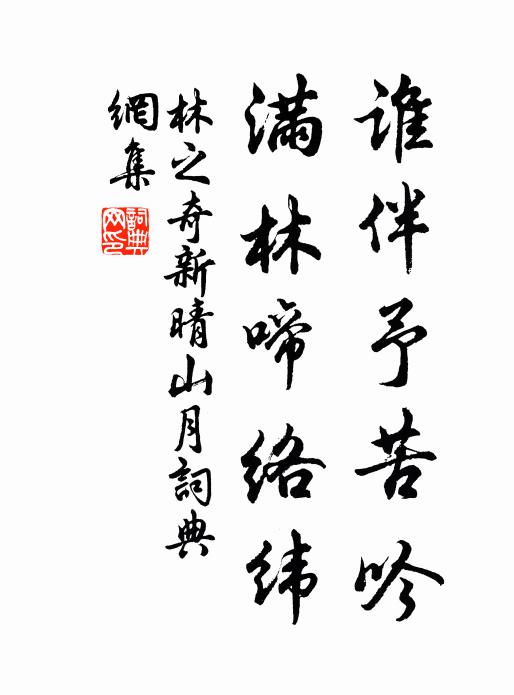 誰伴予苦吟
滿林啼絡緯
林之奇新晴山月詞典
網集
詞典
网印